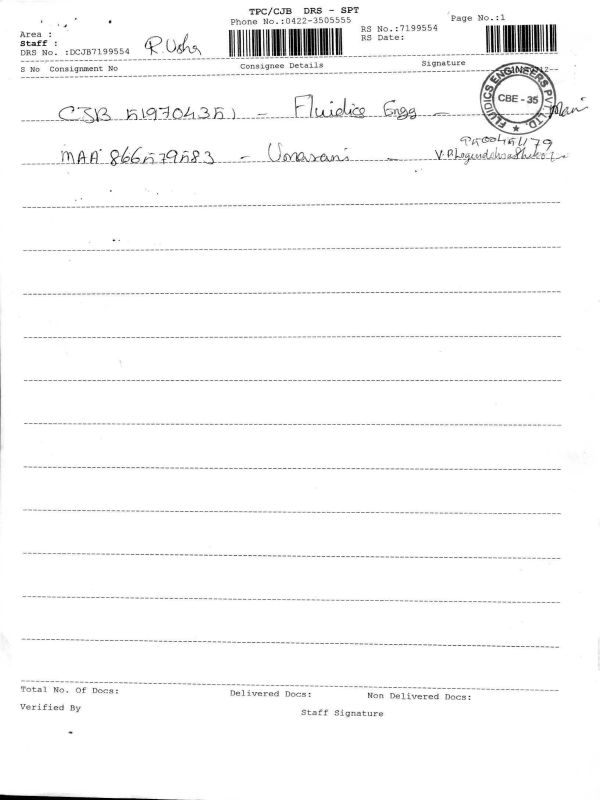 TPC/CJB DRS - SPT
Phone No.:0422-3505555
Page No.:1
Area :
Staff :
R. Usha
RS No.:7199554
DRS No. :DCJB7199554
RS Date:
S No Consignment No Consignee Details Signature
FLUIDICS ENGINEERS PVT. LTD.
CBE - 35
CJB 519704351 - Fluidics Engg - Mani
9500451179
MAA 866579583 - Umarani -
Total No. Of Docs: Delivered Docs: Non Delivered Docs:
Verified By Staff Signature